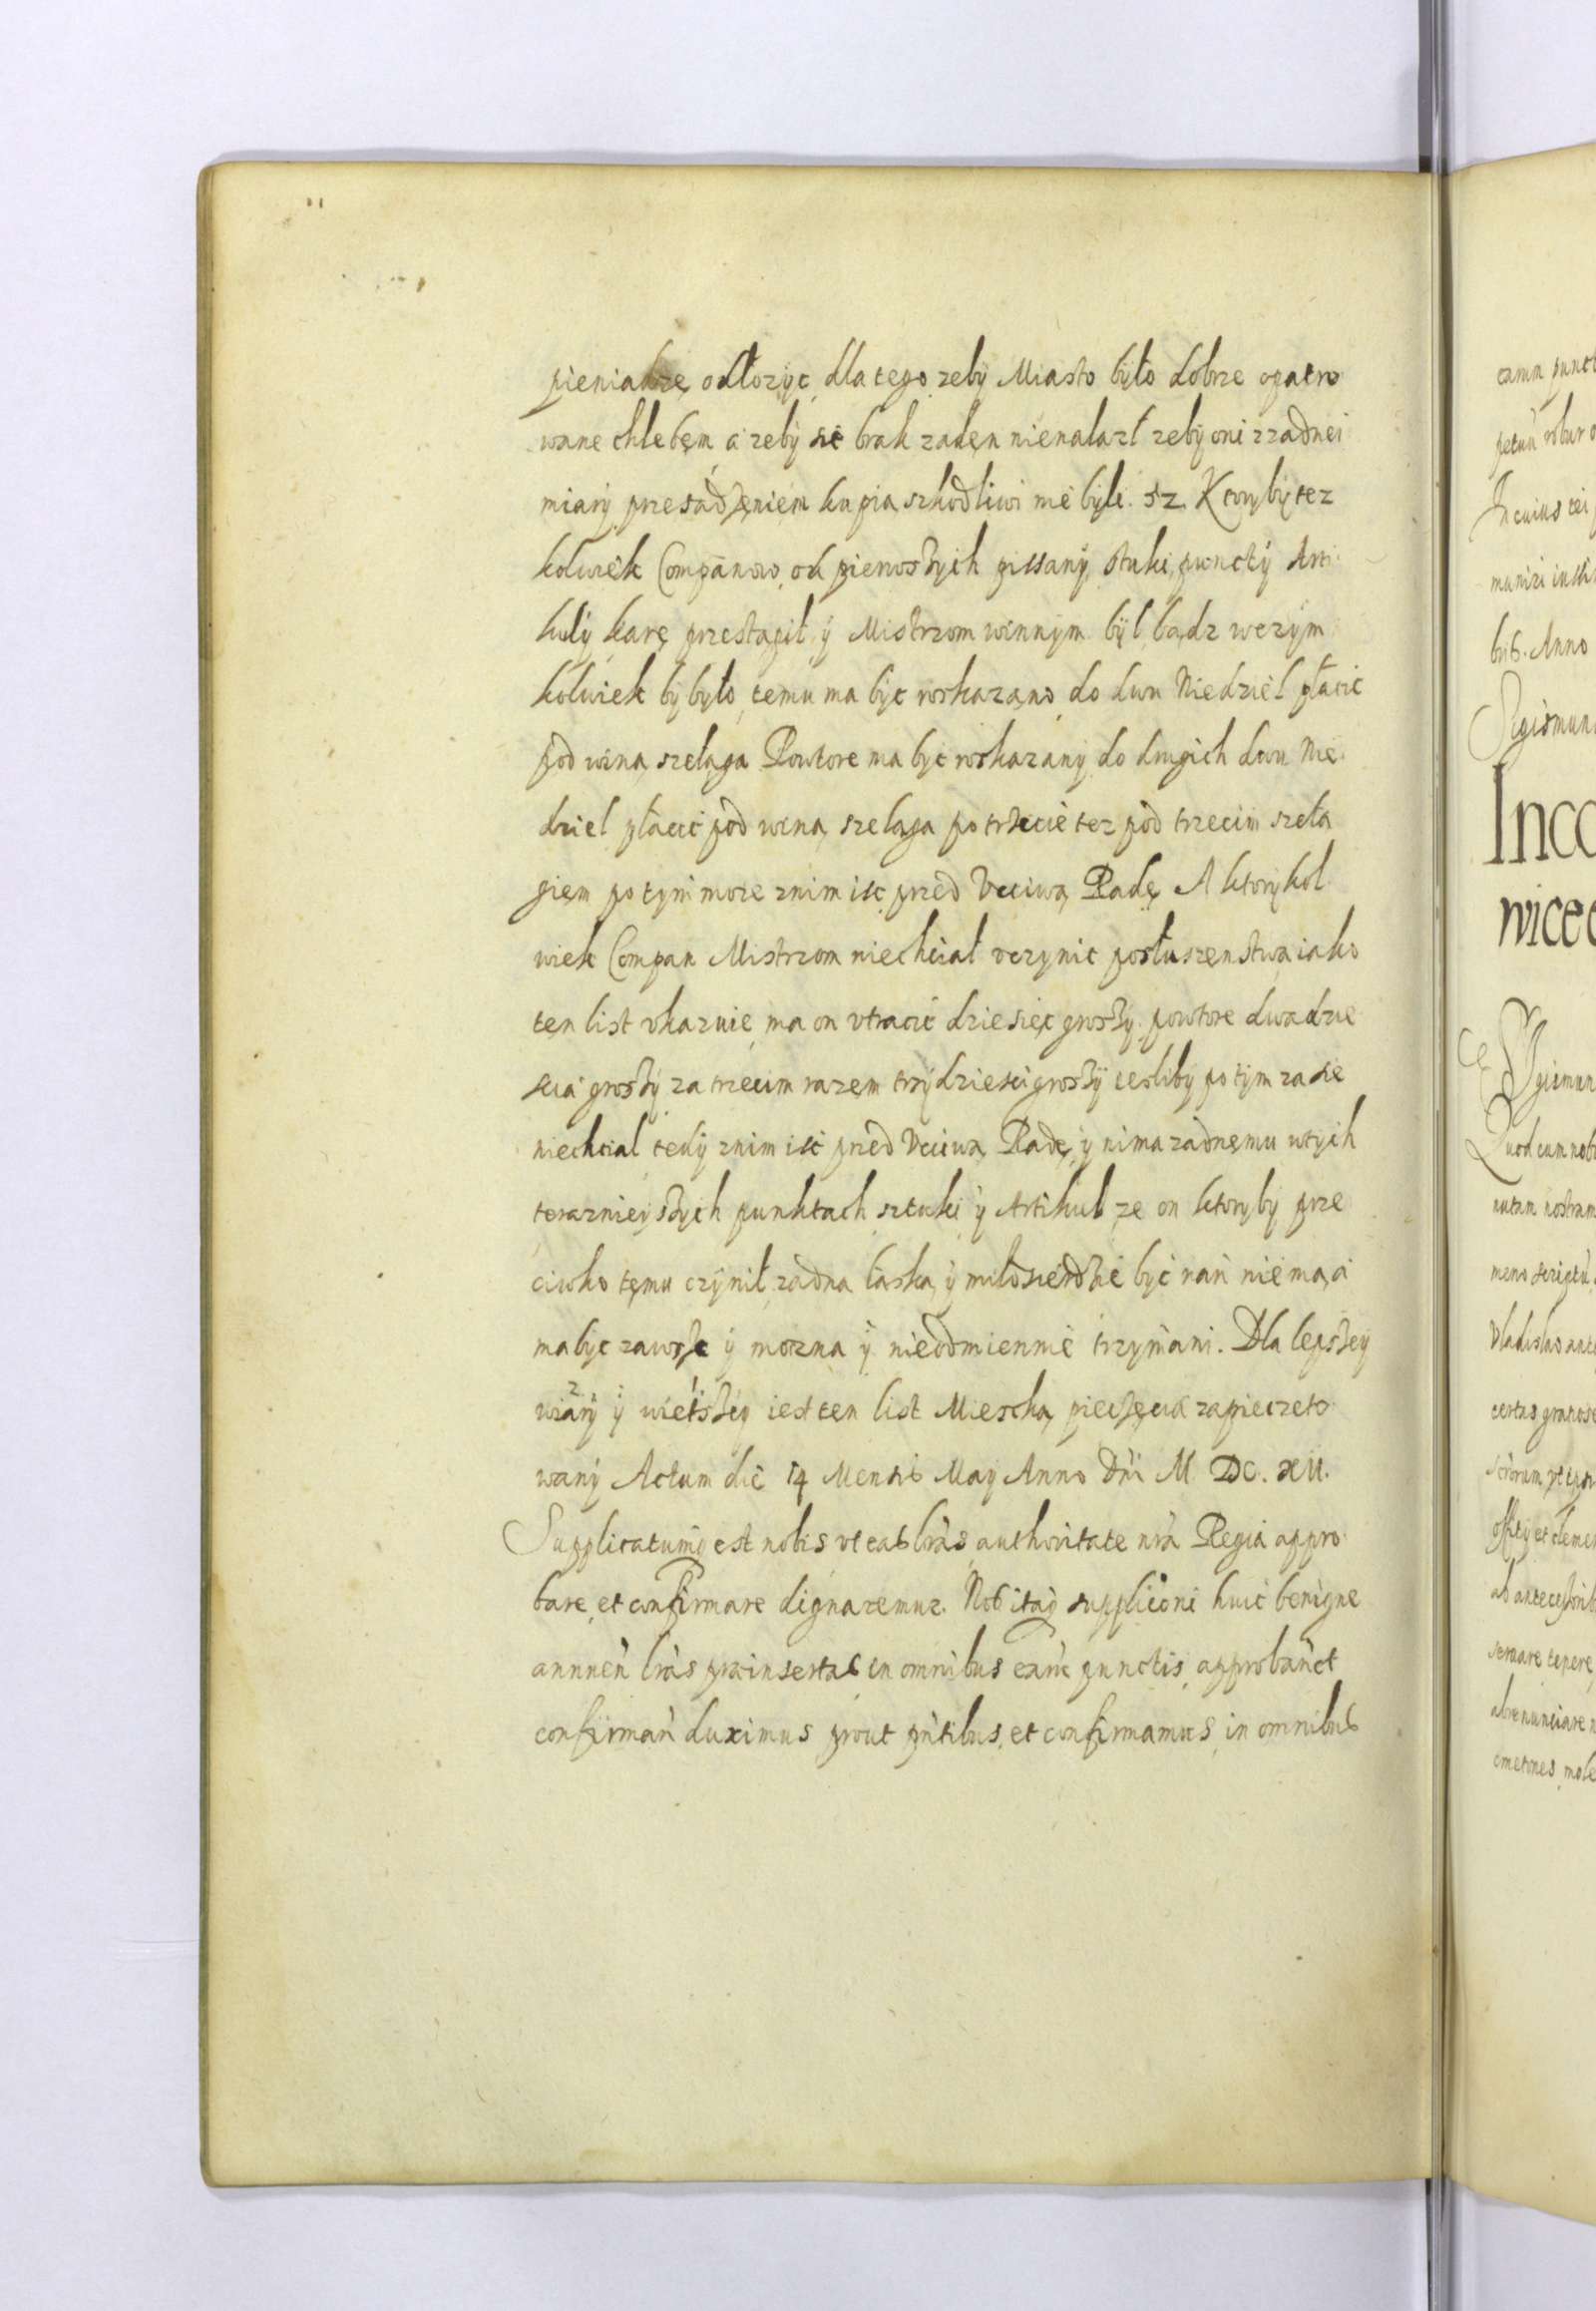 pieniadze odłozyc dla tego zeby Miasto było dobrze opatro
wane chlebem a zeby sie brak zaden nienalazł zeby oni zzadnei
miary przesadzeniem kupia szkodliwi nie byli. 52. Ktoryby tez
kolwiek Companow od pierwszych pissany stuki, puncty Arti
kuły karę przestapił y Mistrzom winnym był badz wczym
kolwiek by było, temu ma byc roskazano do dwu Niedziel płacic
pod wina szelaga Powtore ma byc roskazany do drugich dwu Nie
dziel płacic pod wina szelaga po trzecie tez pod trzecim szela
giem po tym moze znim isc przed Vcciwa Radę A ktorykol
wiek Compan Mistrzom niechciał vczynic posłuszenstwa iako
ten list vkazuie ma on vtracic dziesięc groszy powtore dwadzie
scia groszy za trzecim razem trzydziesci groszy iesliby po tym zasie
niechciał tedy znim isc przed Vcciwa Radę y nima zadnemu wtych
teraznieyszych punktach sztuki y Artikuł ze on ktoryby prze
ciwko temu czynił zadna łaska y miłosierdzie byc nań nie ma, a
ma byc zawsze y mozna y nieodmiennie trzymani. Dla lepszey
wiary y wietszey iest ten list Mieska pieczęcia zapieczeto
wany Actum die 14 Mensis May Anno Dni M. DC. XII.
Supplicatumq est nobis vt eas lras authoritate nra Regia appro
bare et confirmare dignaremur. Nos itaq supplicõni huic benigne
annuen lras præinsertas in omnibus earũ punctis approban et
confirman duximus prout pntibus et confirmamus in omnibus
carum punct
petuũ robur
In cuius rei
muniri iussi
bris. Anno
Sigismun
Inco
wice
Sigismun
Quod cum nob
nutam nostram
meno scriptũ
Vladislao ante
certas
offity et clemen
ab antecessorib
seruare tenere
abrenunciare
cmetones mole